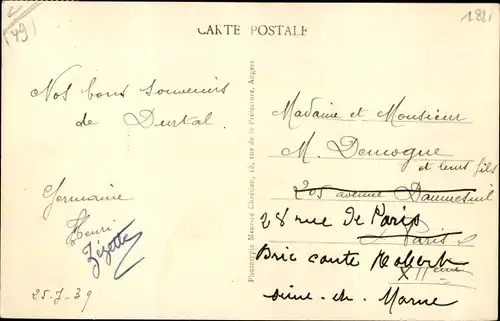 (49)
CARTE POSTALE
Nos bons souvenirs
de Durtal.
Germaine
Henri
Zézette
25-7-39
Phototypie Maurice Chrétien, rue de la Préfecture, Angers
Madame et Monsieur
M. Demogue
et leurs fils
205 avenue Daumesnil
28 rue de Paris
Paris
Brie comte Robert
XIIème
Seine-et-Marne